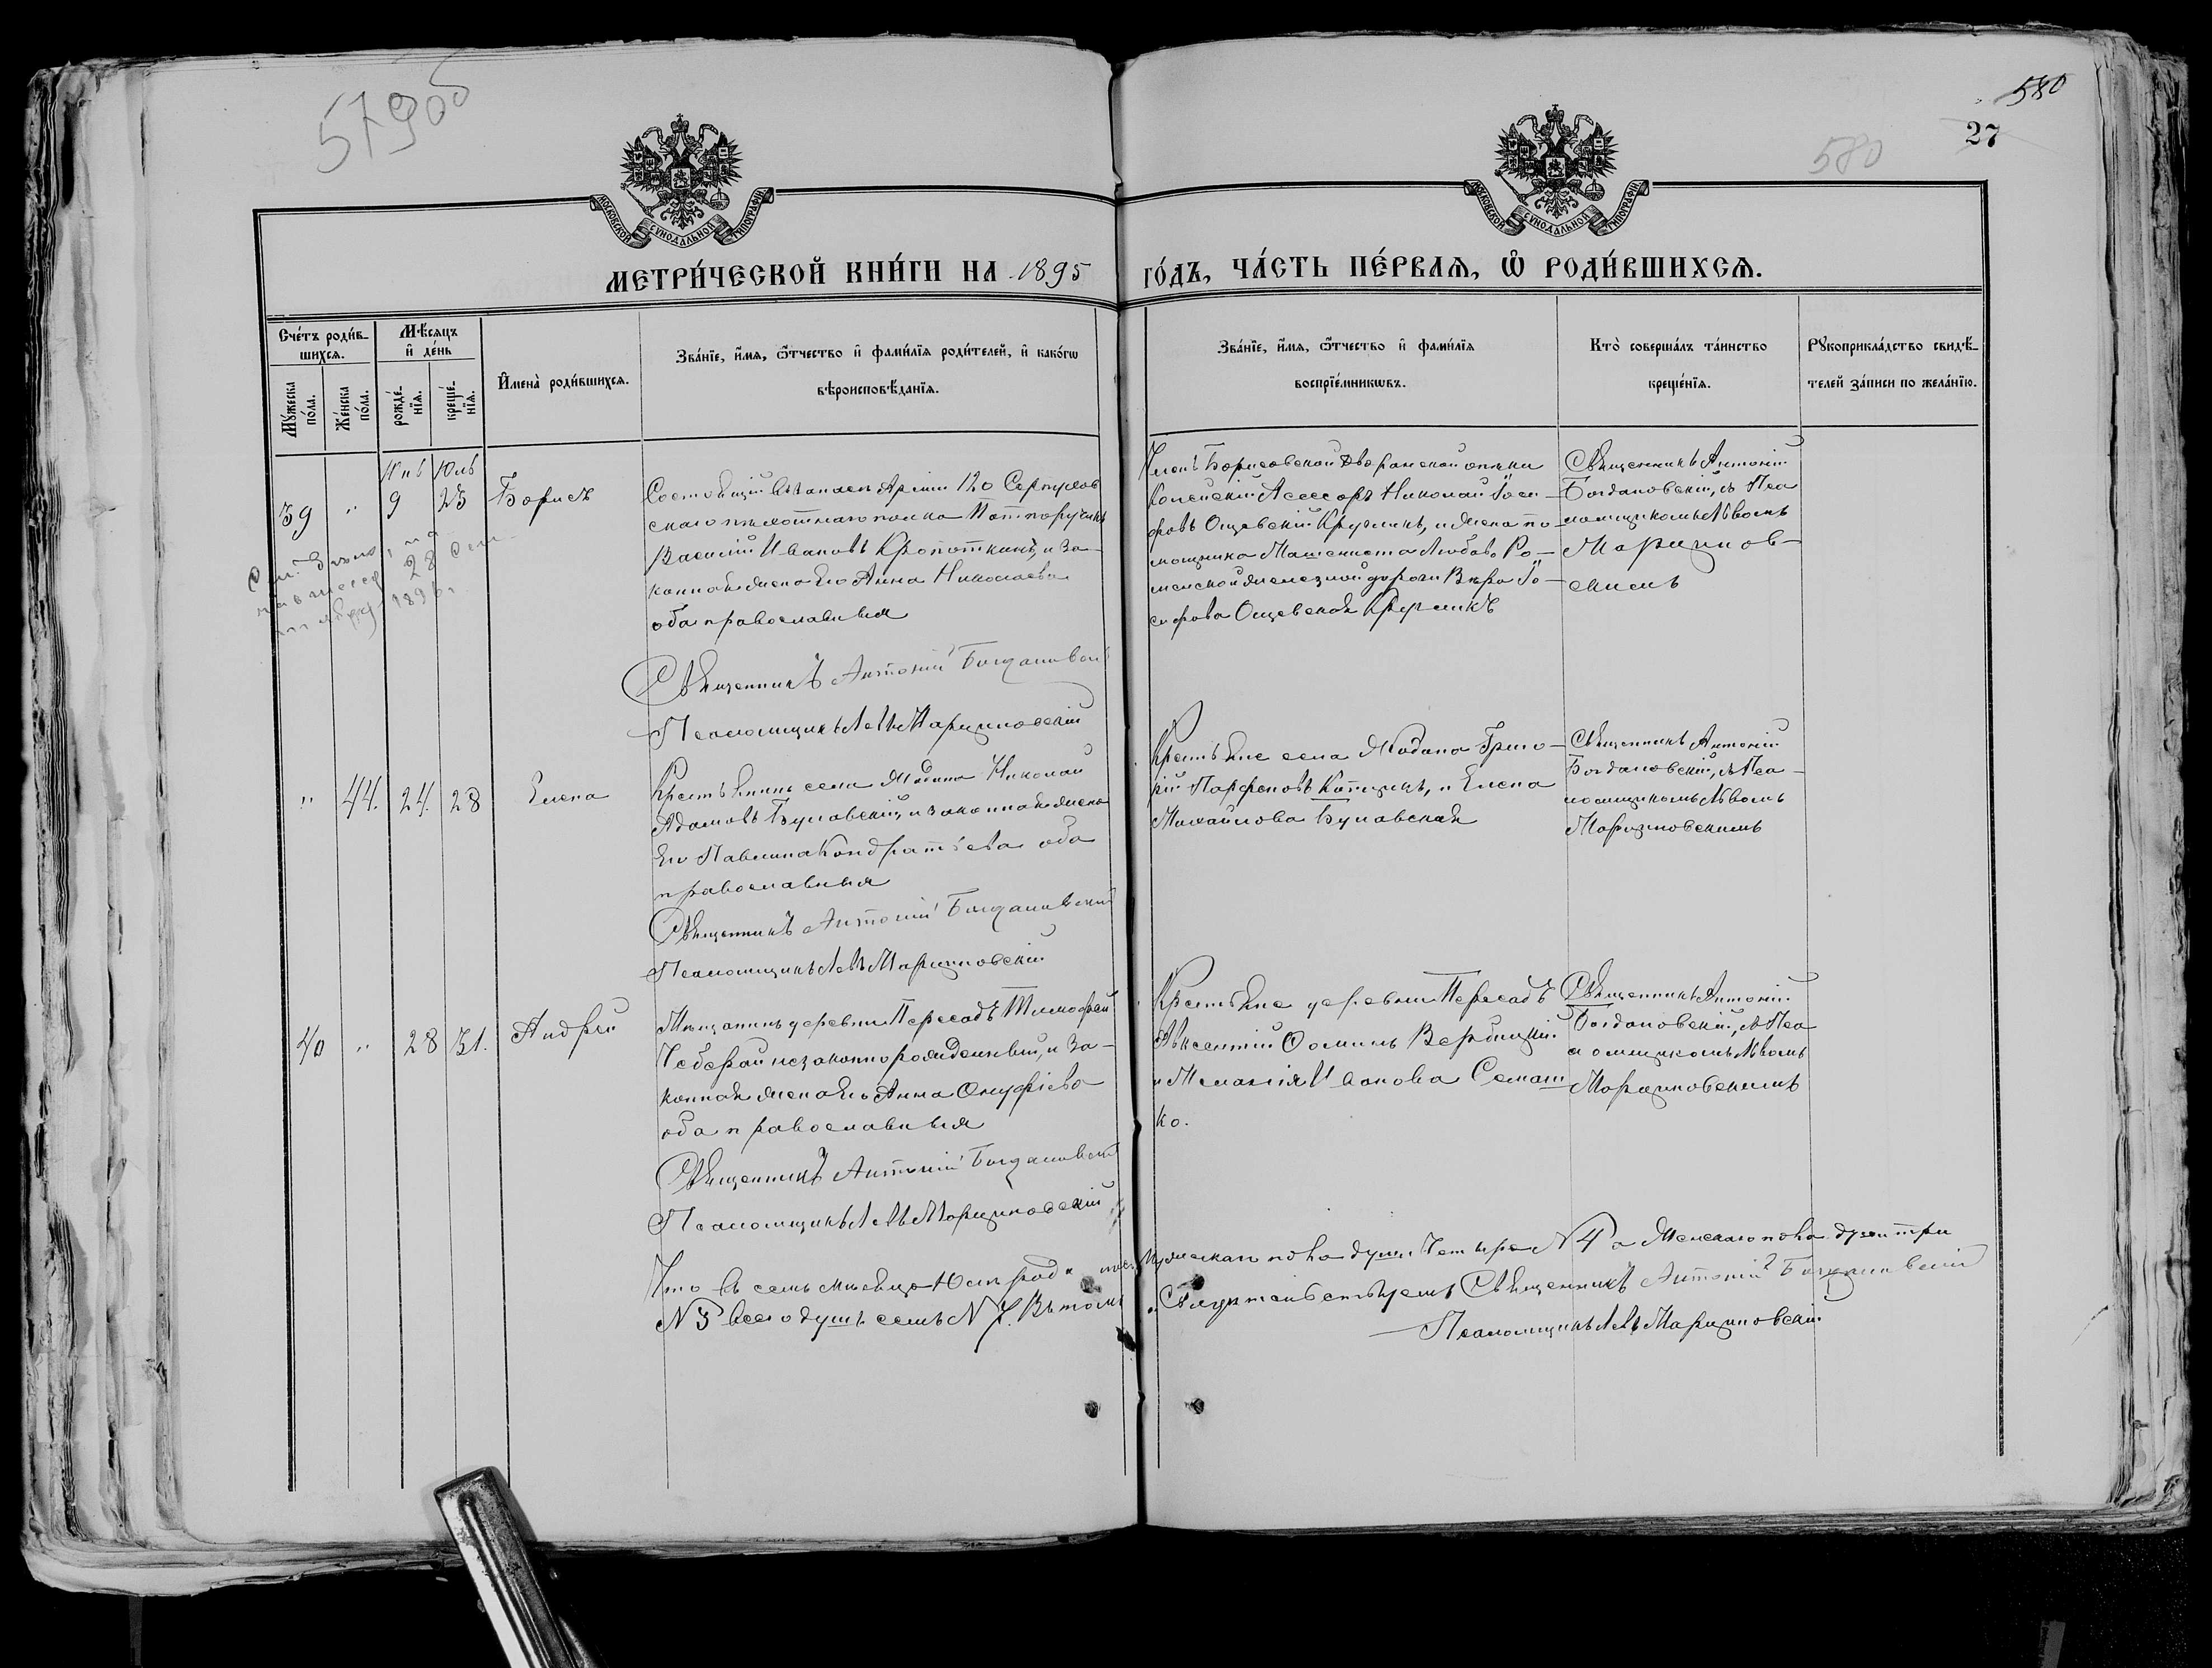 579об
580
27
580
МОСКОВСКОЙ СѴНОДАЛЬНОЙ ТИПОГРАФІИ
МОСКОВСКОЙ СѴНОДАЛЬНОЙ ТИПОГРАФІИ
МЕТРИ́ЧЕСКОЙ КНИ́ГИ НА 1895 ГО́ДЪ, ЧА́СТЬ ПЕ́РВАѦ, Ѽ РОДИ́ВШИХСѦ.
Сче́тъ роди́в-
шихсѧ.
Мꙋ́жеска по́ла.
Же́нска по́ла.
Мѣ́сѧцъ
и҆ де́нь
рожде́-нїѧ.
креще́-нїѧ.
И҆мена̀ роди́вшихсѧ.
Зва́нїе, и҆́мѧ, ѻ҆́тчество и҆ фами́лїѧ роди́телей, и҆ како́гѡ
вѣроисповѣ́данїѧ.
Зва́нїе, и҆́мѧ, ѻ҆́тчество и҆ фами́лїѧ
воспрїе́мникѡвъ.
Кто̀ соверша́лъ та́инство
креще́нїѧ.
Рꙋкоприкла́дство свидѣ́-
телей за́писи по жела́нїю.
39 " 9 25 Борисъ
Состоящій въ запасѣ Арміи 120 Серпухов
скаго пѣхотнаго полка Подпоручикъ
Василій Ивановъ Кропоткинъ, и за-
конная жена его Анна Николаева
оба православныя
Священникъ Антоній Богдановскій
Псаломщикъ Левъ Марциновскій
Членъ Борисовской дворянской опеки
Колежскій Асесоръ Николай Іоси-
фовъ Ощевскій Круглик, и жена по-
мощника Машиниста Любаво Ро-
менской железной дороги Вера Іо-
сифова Ощевская Кругликъ
Священникъ Антоній
Богдановскій, съ Пса
ломщикомъ Львомъ
Марцинов-
скимъ
28 Сен-
1896 г
" 44. 24. 28 Елена
Крестьянинъ села Жодина Николай
Адамовъ Булавскій, и законная жена
его Павлина Кондратьева оба
православныя
Священникъ Антоній Богдановскій
Псаломщикъ Левъ Марциновскій
Крестьяне села Жодина Григо-
рій Парфеновъ Котцикъ, и Елена
Михайлова Булавская
Священникъ Антоній
Богдановскій, съ Пса-
ломщикомъ Львомъ
Марциновскимъ
40 " 28 31. Андрей
Мещанинъ деревни Пересадъ Тимофей
Чеберай незаконнорожденный, и за-
конная жена его Анна Онуфріева
оба православныя
Священникъ Антоній Богдановскій
Псаломщикъ Левъ Марциновскій
Крестьяне деревни Пересадъ
Авксентій Ѳоминъ Вербицкій
и Меланія Иванова Семаш
ко.
Священникъ Антоній
Богдановскій, съ Пса
ломщикомъ Львомъ
Марциновскимъ
Что въ семъ месяце Юле мужскаго пола души Четыре № 4 а Женскаго пола души три
№ 3 всего душъ семъ № 7. Въ томъ Свидетельствуемъ Священникъ Антоній Богдановскій
Псаломщикъ Левъ Марциновскій